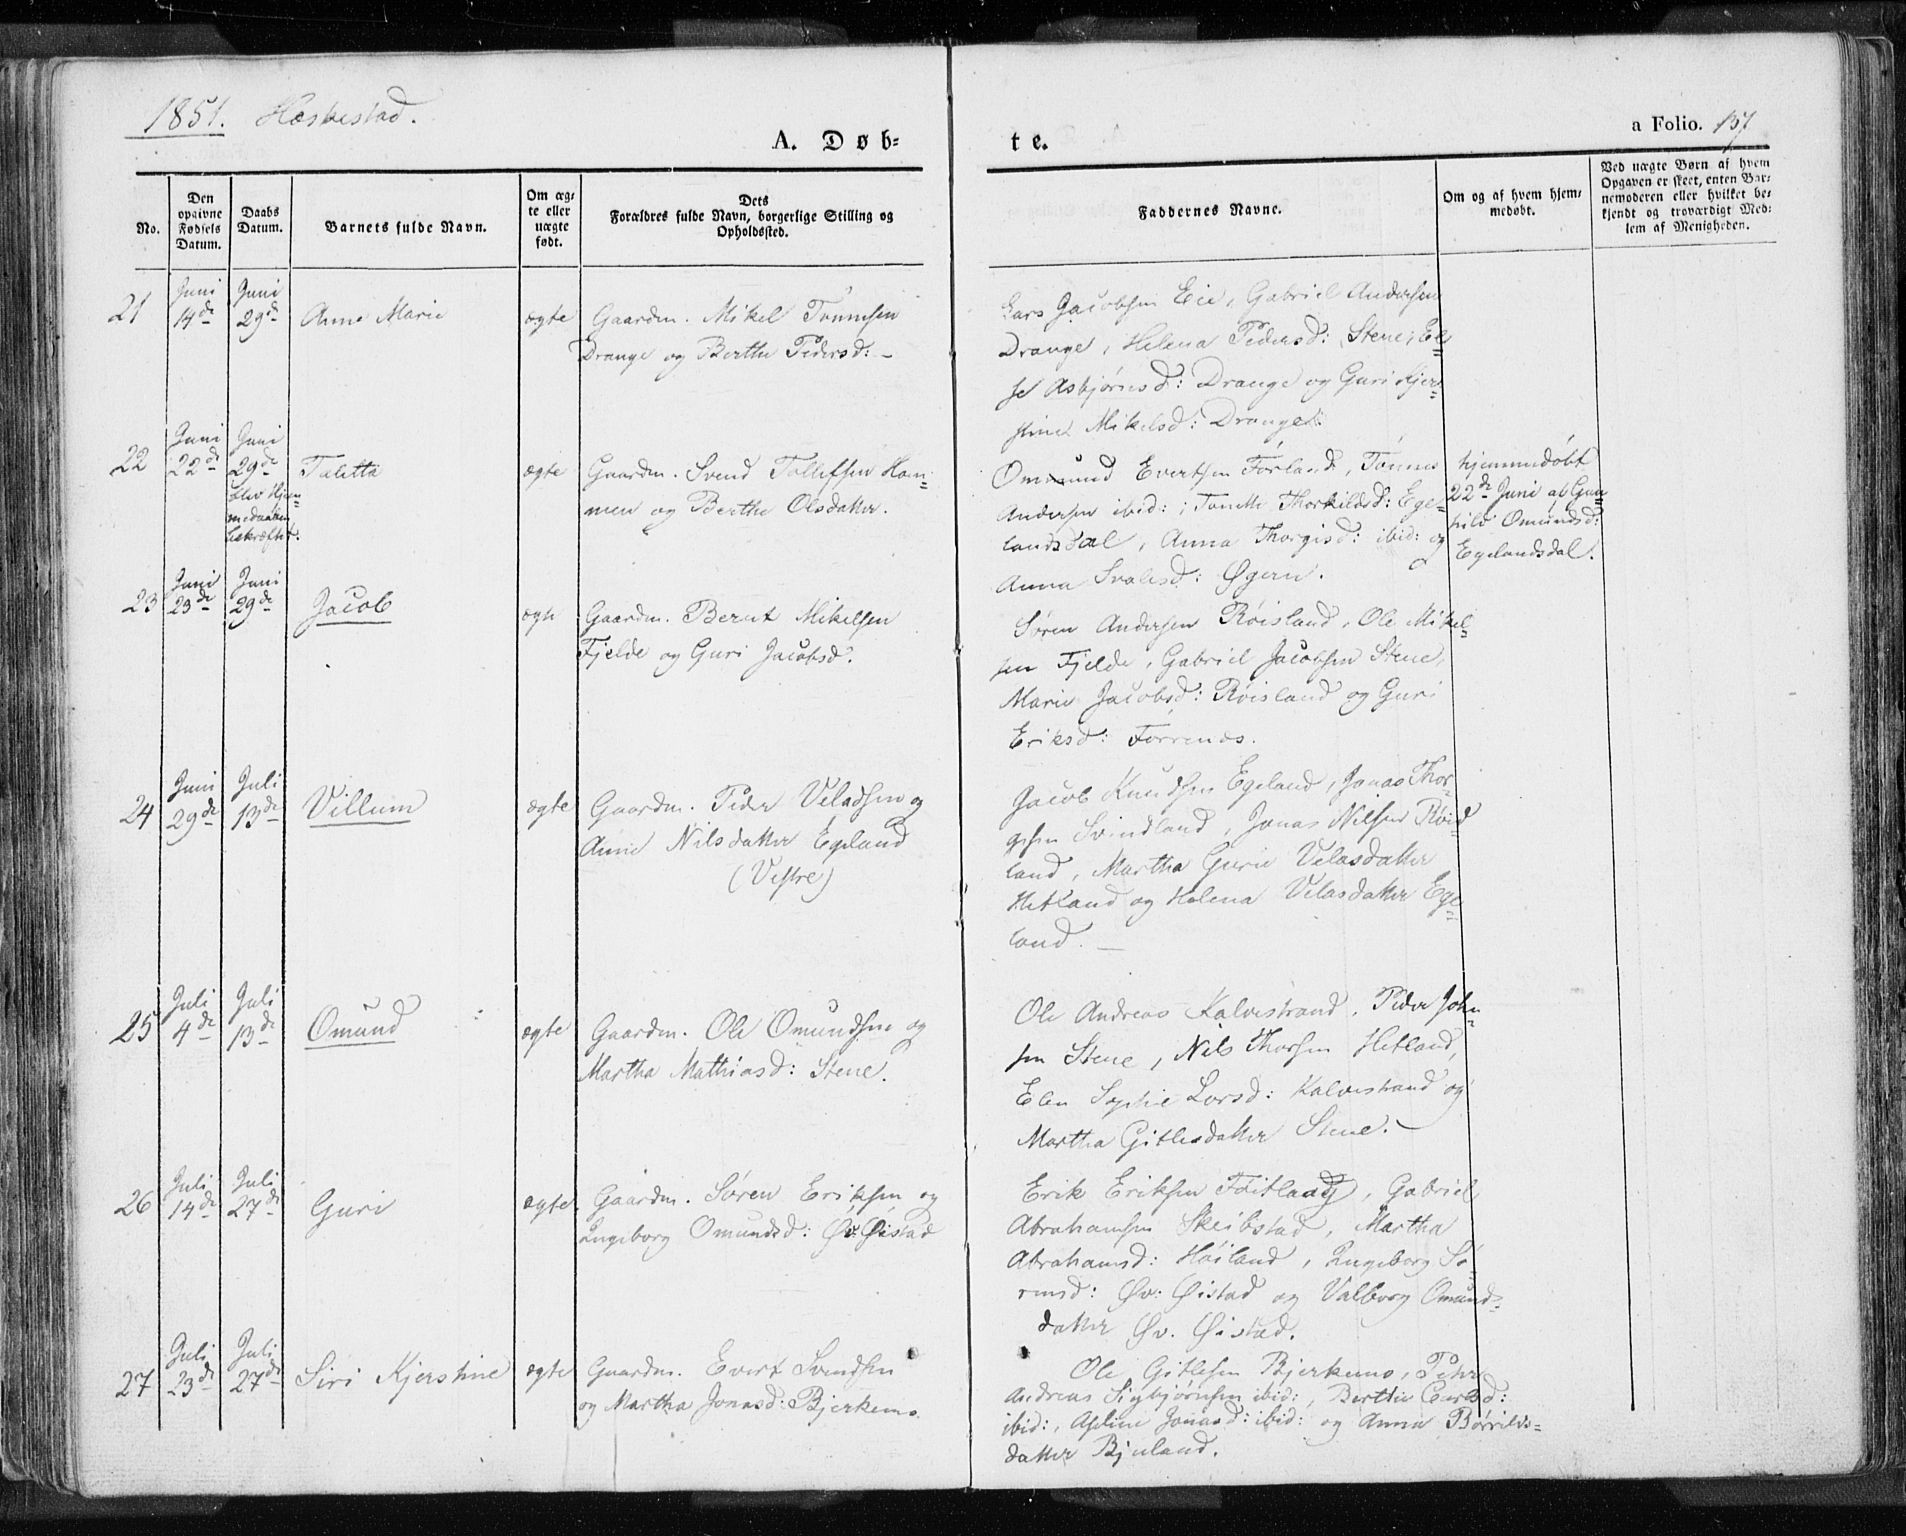 1851. Heskestad.
A. Døb-
te.
a Folio. 137
No.
Den
opgivne
Fødsels
Datum.
Daabs
Datum.
Barnets fulde Navn.
Om æg-
te eller
uægte
født.
Dets
Forældres fulde Navn, borgerlige Stilling og
Opholdssted.
Faddernes Navne.
Om og af hvem hjem-
medøbt.
Ved uægte Børn af hvem
Opgaven er skeet, enten Bar-
nemoderen eller hvilket be-
kjendt og troværdigt Med-
lem af Menigheden.
21
Juni
14de
Juni
29de
Anne Marie
ægte
Gaardm. Mikel Tønnesen
Drange og Berthe Pedersd: -
Lars Jacobsen Eie, Gabriel Andersen
Drange, Helena Pedersd: Stene, El-
se Asbjørnsd: Drange og Guri Kjer-
stine Mikelsd: Drange.
22
Juni
22de
Juni
29de
blev Hjem-
medaaben
bekræftet.
Taletta
ægte
Gaardm. Svend Tollefsen Ham-
men og Berthe Olsdatter.
Ommund Evertsen Førland, Tønnes
Andersen ibid:, Tonette Thorkildsd: Ege-
landsdal, Anna Thorgisd: ibid: og
Anna Svalesd: Øgern.
hjemmedøbt
22de Juni af Gun-
hild Omundsd:
Egelandsdal.
23
Juni
23de
Juni
29de
Jacob
ægte
Gaardm. Bernt Mikelsen
Fjelde og Guri Jacobsd.
Søren Andersen Røisland, Ole Mikel-
sen Fjelde, Gabriel Jacobsen Stene,
Marie Jacobsd: Røisland og Guri
Eriksd: Førrenes.
24
Juni
29de
Juli
13de
Villum
ægte
Gaardm. Peder Veladsen og
Anne Nilsdatter Egeland
(Vestre)
Jacob Knudsen Egeland, Jonas Thor-
gisen Svindland, Jonas Nilsen Røid-
land, Martha Gurie Velasdatter
Hetland og Helena Velasdatter Ege-
land. -
25
Juli
4de
Juli
13de
Omund
ægte
Gaardm. Ole Omundsen og
Martha Mathiasd: Stene.
Ole Andreas Kalvestrand, Peder John-
sen Stene, Nils Thorsen Hetland,
Elen Sophie Larsd: Kalvestrand og
Martha Gitlesdatter Stene. -
26
Juli
14de
Juli
27de
Guri
ægte
Gaardm. Søren Eriksen og
Ingeborg Omundsd: Øv: Øistad
Erik Eriksen, Gabriel
Abrahamsen Skeibstad, Martha
Abrahamsd: Høiland, Ingeborg Sø-
rensd: Øv: Øistad og Valborg Omund-
datter Øv. Øistad.
27
Juli
23de
Juli
27de
Siri Kjerstine
ægte
Gaardm. Evert Svendsen
og Martha Jonasd: Bjerkemo
Ole Gitlesen Bjerkemo, Peder
Andreas Sigbjørnsen ibid:, Berthe
ibid:, Jonasd: ibid: og Anna Børrilds-
datter Bjuland.